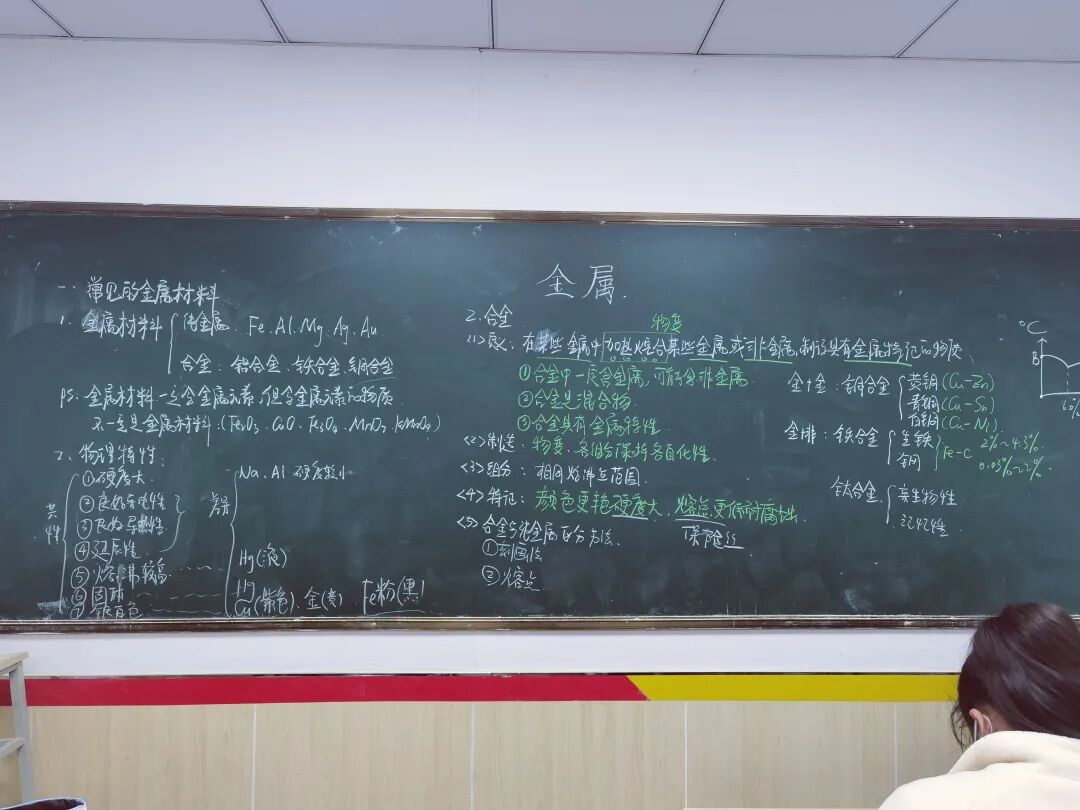 金属.
一、常见的金属材料
1. 金属材料 纯金属、Fe、Al、Mg、Ag、Au
合金：铝合金、钛合金、铜合金
PS. 金属材料一定含金属元素，但含金属元素的物质
不一定是金属材料.(Fe₂O₃、CaO、Fe₃O₄、MnO₂、KMnO₄)
2、物理特性、
共性
①硬度大、
②良好导电性
③良好导热性
④延展性
⑤熔沸较高
⑥固体
⑦银白色
差异
Na、Al 硬度较小
Hg(液)
Hg
Cu(紫色)、金(黄) Fe粉(黑)
2、合金
物变
<1>定义：在某些金属中加热熔合某些金属或非金属,制得具有金属特征的物质.
①合金中一定含金属，可能含非金属.
②合金是混合物
③合金具有金属特性.
<2>制造：物变、各组分保持各自化性.
<3>组分：相同熔沸点范围.
<4>特征：颜色更艳硬度大、熔点更低耐腐蚀
保险丝
<5>合金与纯金属区分方法、
①刻画法
②熔点
金+金：铜合金
黄铜(Cu-Zn)
青铜(Cu-Sn)
白铜(Cu-Ni)
金+非：铁合金
生铁 2%~4.3%
钢 0.03%~2%
Fe-C
钛合金
亲生物性
记忆性
℃
B